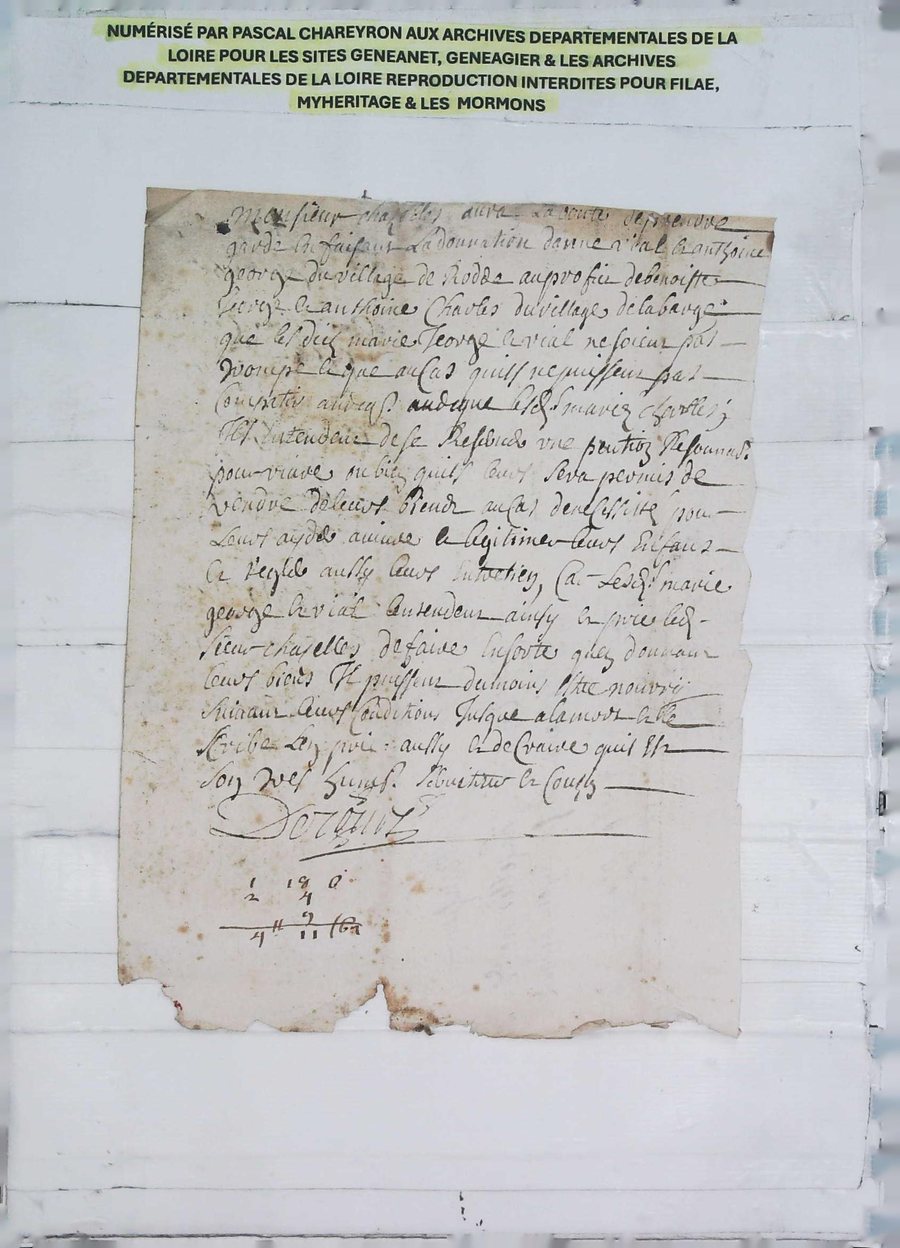 NUMÉRISÉ PAR PASCAL CHAREYRON AUX ARCHIVES DEPARTEMENTALES DE LA
LOIRE POUR LES SITES GENEANET, GENEAGIER & LES ARCHIVES
DEPARTEMENTALES DE LA LOIRE REPRODUCTION INTERDITES POUR FILAE,
MYHERITAGE & LES MORMONS
Monsieur chaselles aura la bonté de prendre
garde en faisant La donnation danne vial et anthoine
george du village de Rodde au profit de benoiste
george et anthoine Charles du village de la barge
que les dits mariés george et vial ne soient pas
trompé et que au Cas quils ne puissent pas
Compatir avecq lesd mariez charles
Ils entendent de se Reserver une pention
pour vivre ou bien quils leurs sera permis de
vendre de leurs biens au Cas de necessité pour
Leurs ayder a vivre et legitimer leurs Enfans
et reglé aussy leurs Entretien, Car Lesd marie
george et vial entendent ainsy et prie led
sieur chaselles de faire Ensorte quen donnant
leurs biens Il puissent du moins Estre nourry
suivant leurs Conditions Jusque a la mort et le
scribe Len prie aussy et de Croire quil Est
son tres humb. serviteur et Cousin
1 18 6
2 4
9
4 11 6